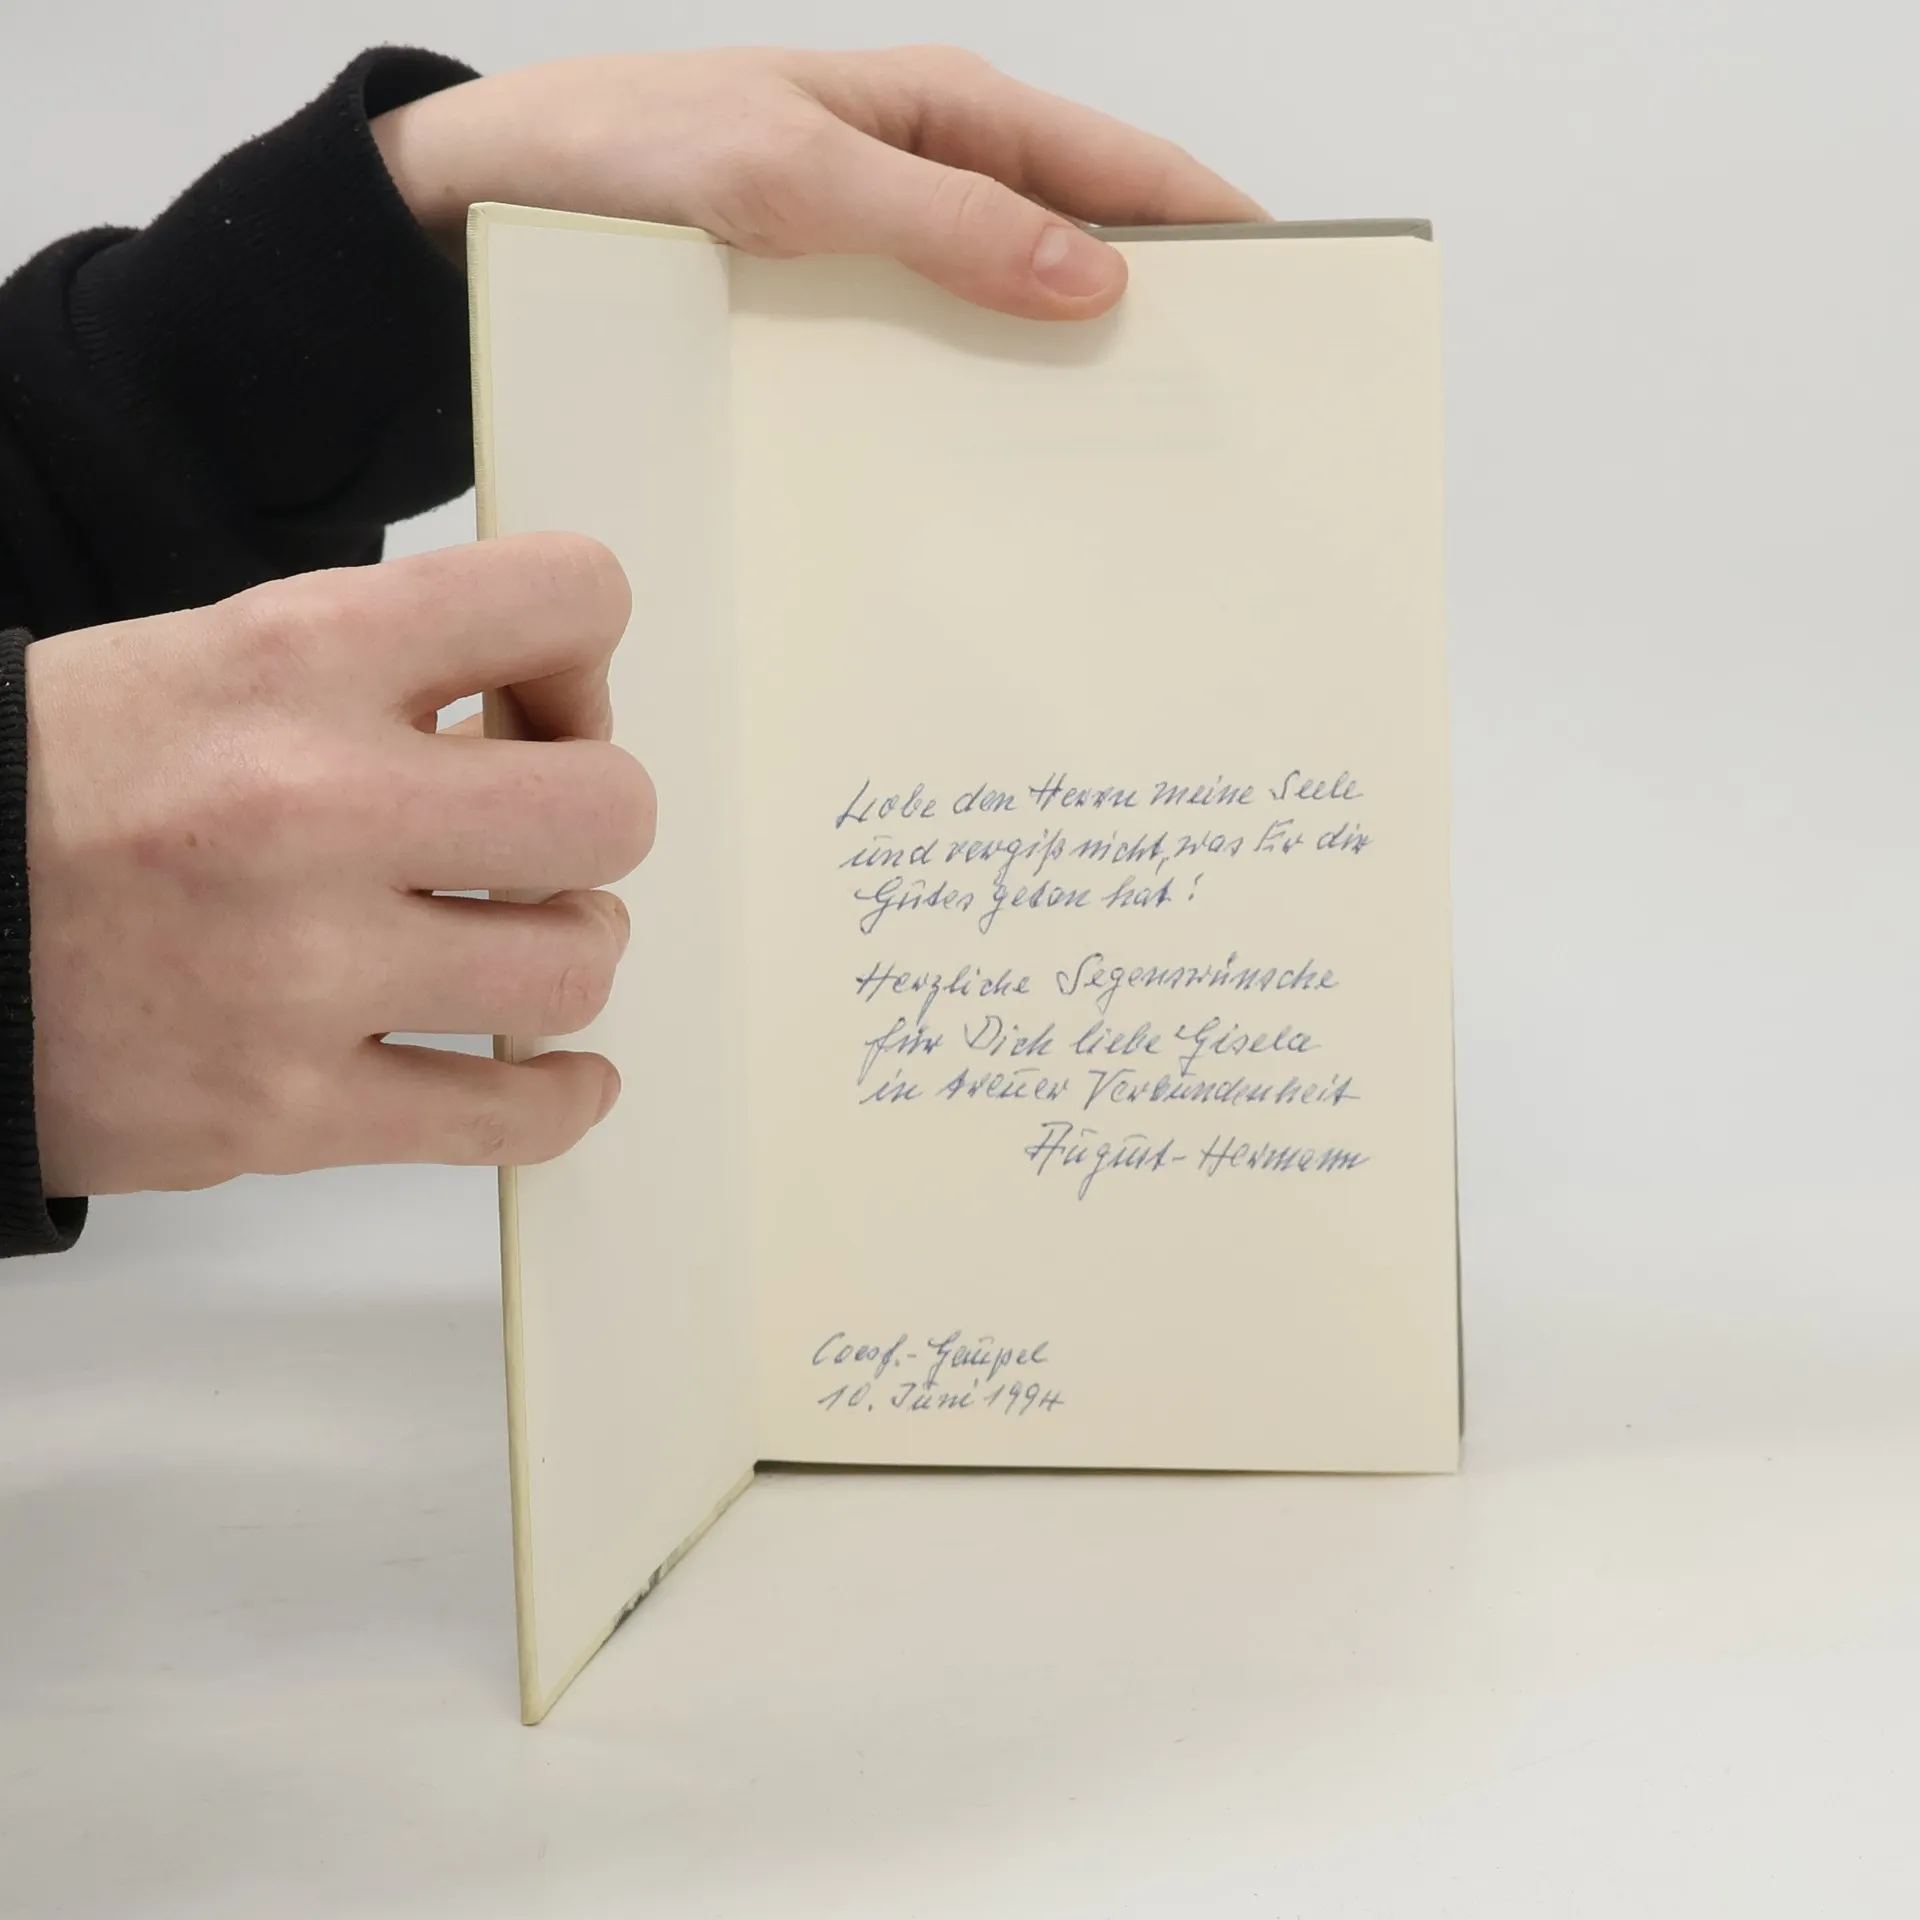 Lobe den Herrn meine Seele
und vergiß nicht, was Er dir
Gutes getan hat!
Herzliche Segenswünsche
für Dich liebe Gisela
in treuer Verbundenheit
August-Hermann
Coesf.-Gaupel
10. Juni 1994